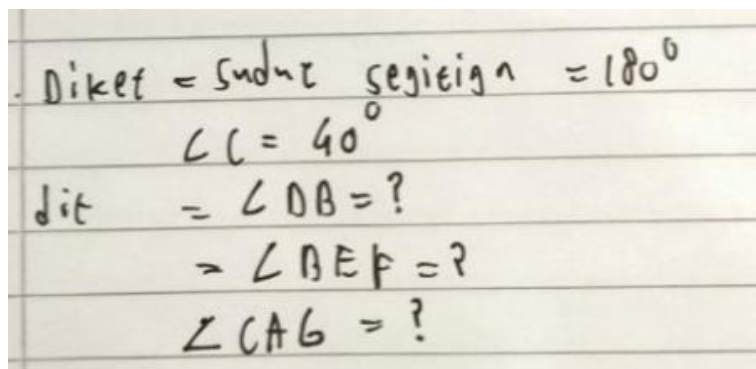 . Diket = Sudut segitiga = 180°
∠C = 40°
dit = ∠DB = ?
= ∠BEF = ?
∠CAG = ?